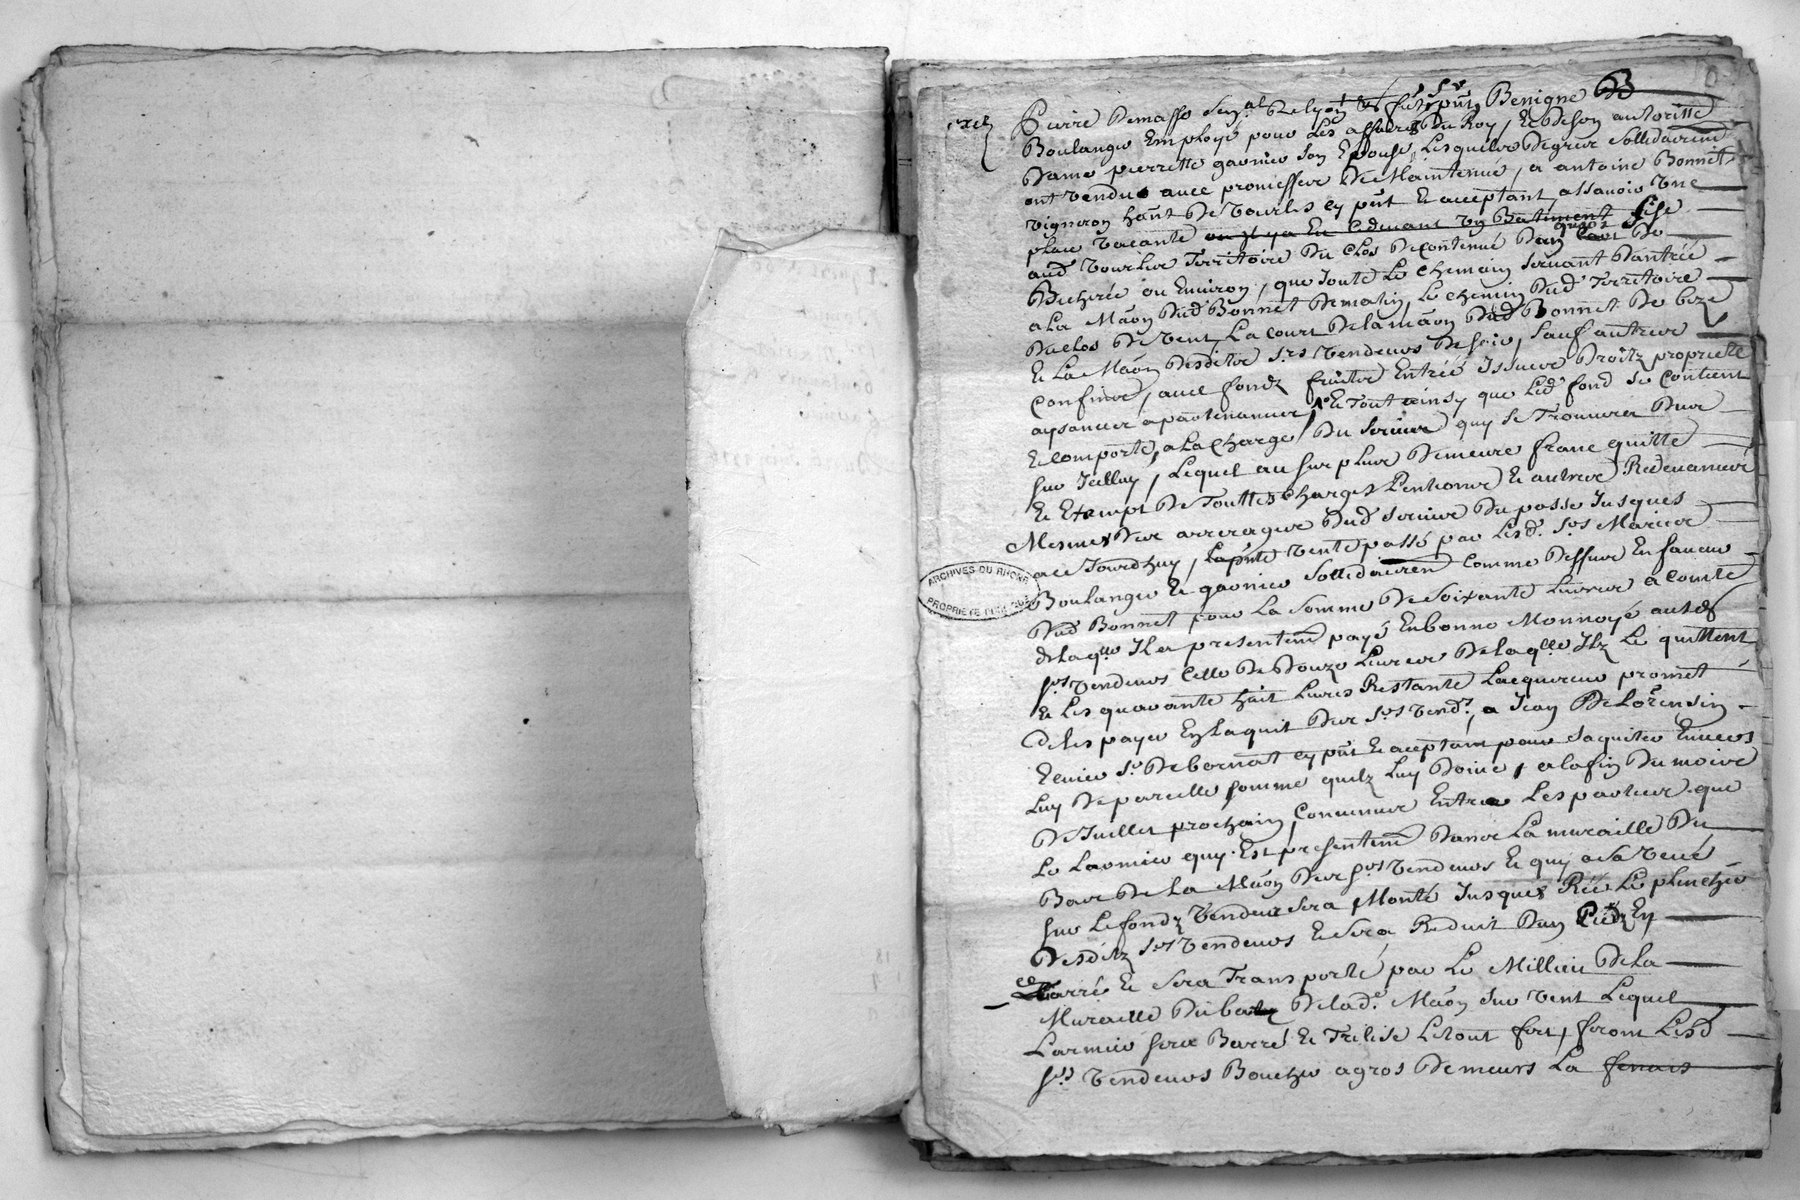 Pierre Demasso Sen.al De lyon fut put Sr Benigne
Boulanger Employé pour Les affaires Du Roy, Et De son autoritté
Dame pierrette garnier son Epouse, Lesquelz De gre Sollidairem
ont vendu avec promesse De Maintenue, a antoine Bonnet
vigneron hant De vourles cy put Et acceptant, assavoir Une
place vacante ou il y a Eu cedevant Un Batiment sise
aud vourles Territoire Du Clos De contenue Dun quart De
Bicherée ou Environ, que Joute Le chemain servant Dantrée
a La Maon Dud Bonnet De matin, Le chemin Dud Territoire
Du clos De vent, La court De la maon Dud Bonnet De bize
Et La Maon Desditz Srs vendeurs De soir, sauf autres
confins, avec fondz fruitz Entrée Issues Droitz proprieté
aysances apartenances, Le Tout ainsy que Led fond se contient
Et comporte, a La Charge Du service quy se Trouvera Deu
sur Icelluy, Lequel au surplus Demeure franc quitte
Et Exempt De Touttes Charges Pentions Et autres Redevances
Mesmes Des arrerages Dud service Du passé Jusques
a ce Jourdhuy, Lapnte vente passé par Lesd. Srs Maries
Boulanger Et garnier sollidairem Comme Dessus En faveur
Dud Bonnet pour La Somme De Soixante Livres a Comte
de laqlle Il a presentem payé En bonne Monnoye ausd
srs vendeurs Celle De Douze Livres De laqlle Ilz Le quittent
Et Les quarante huit Livres Restante Lacquereur promet
de les payer En Laquit Des Srs vend.rs, a Jean De Lorensin
Ecuier Sr De bornat cy put Et aceptant pour saquiter Envers
Luy De pareille somme quilz Luy Doive, a la fin Du mois
De Juillet prochain, Convenues Entre Les parties que
Le Larmier quy Est presentem Dans La muraille Du
Bas De La Maon Des srs vendeurs Et quy a sa veue
sur Le fondz vendeu sera Monté Jusques Le plencher
Desditz Srs vendeurs Et sera Reduit Dun Piedz En
Carré Et sera Transporté par Le Millieu De La
Muraille Du bas De lad.e Maon sur vent Lequel
Larmier sera Barré Et Trelisé Letout fert, feront Lesd
srs vendeurs Boucher a gros De meurs La fenais
ARCHIVES DU RHONE
PROPRIETE